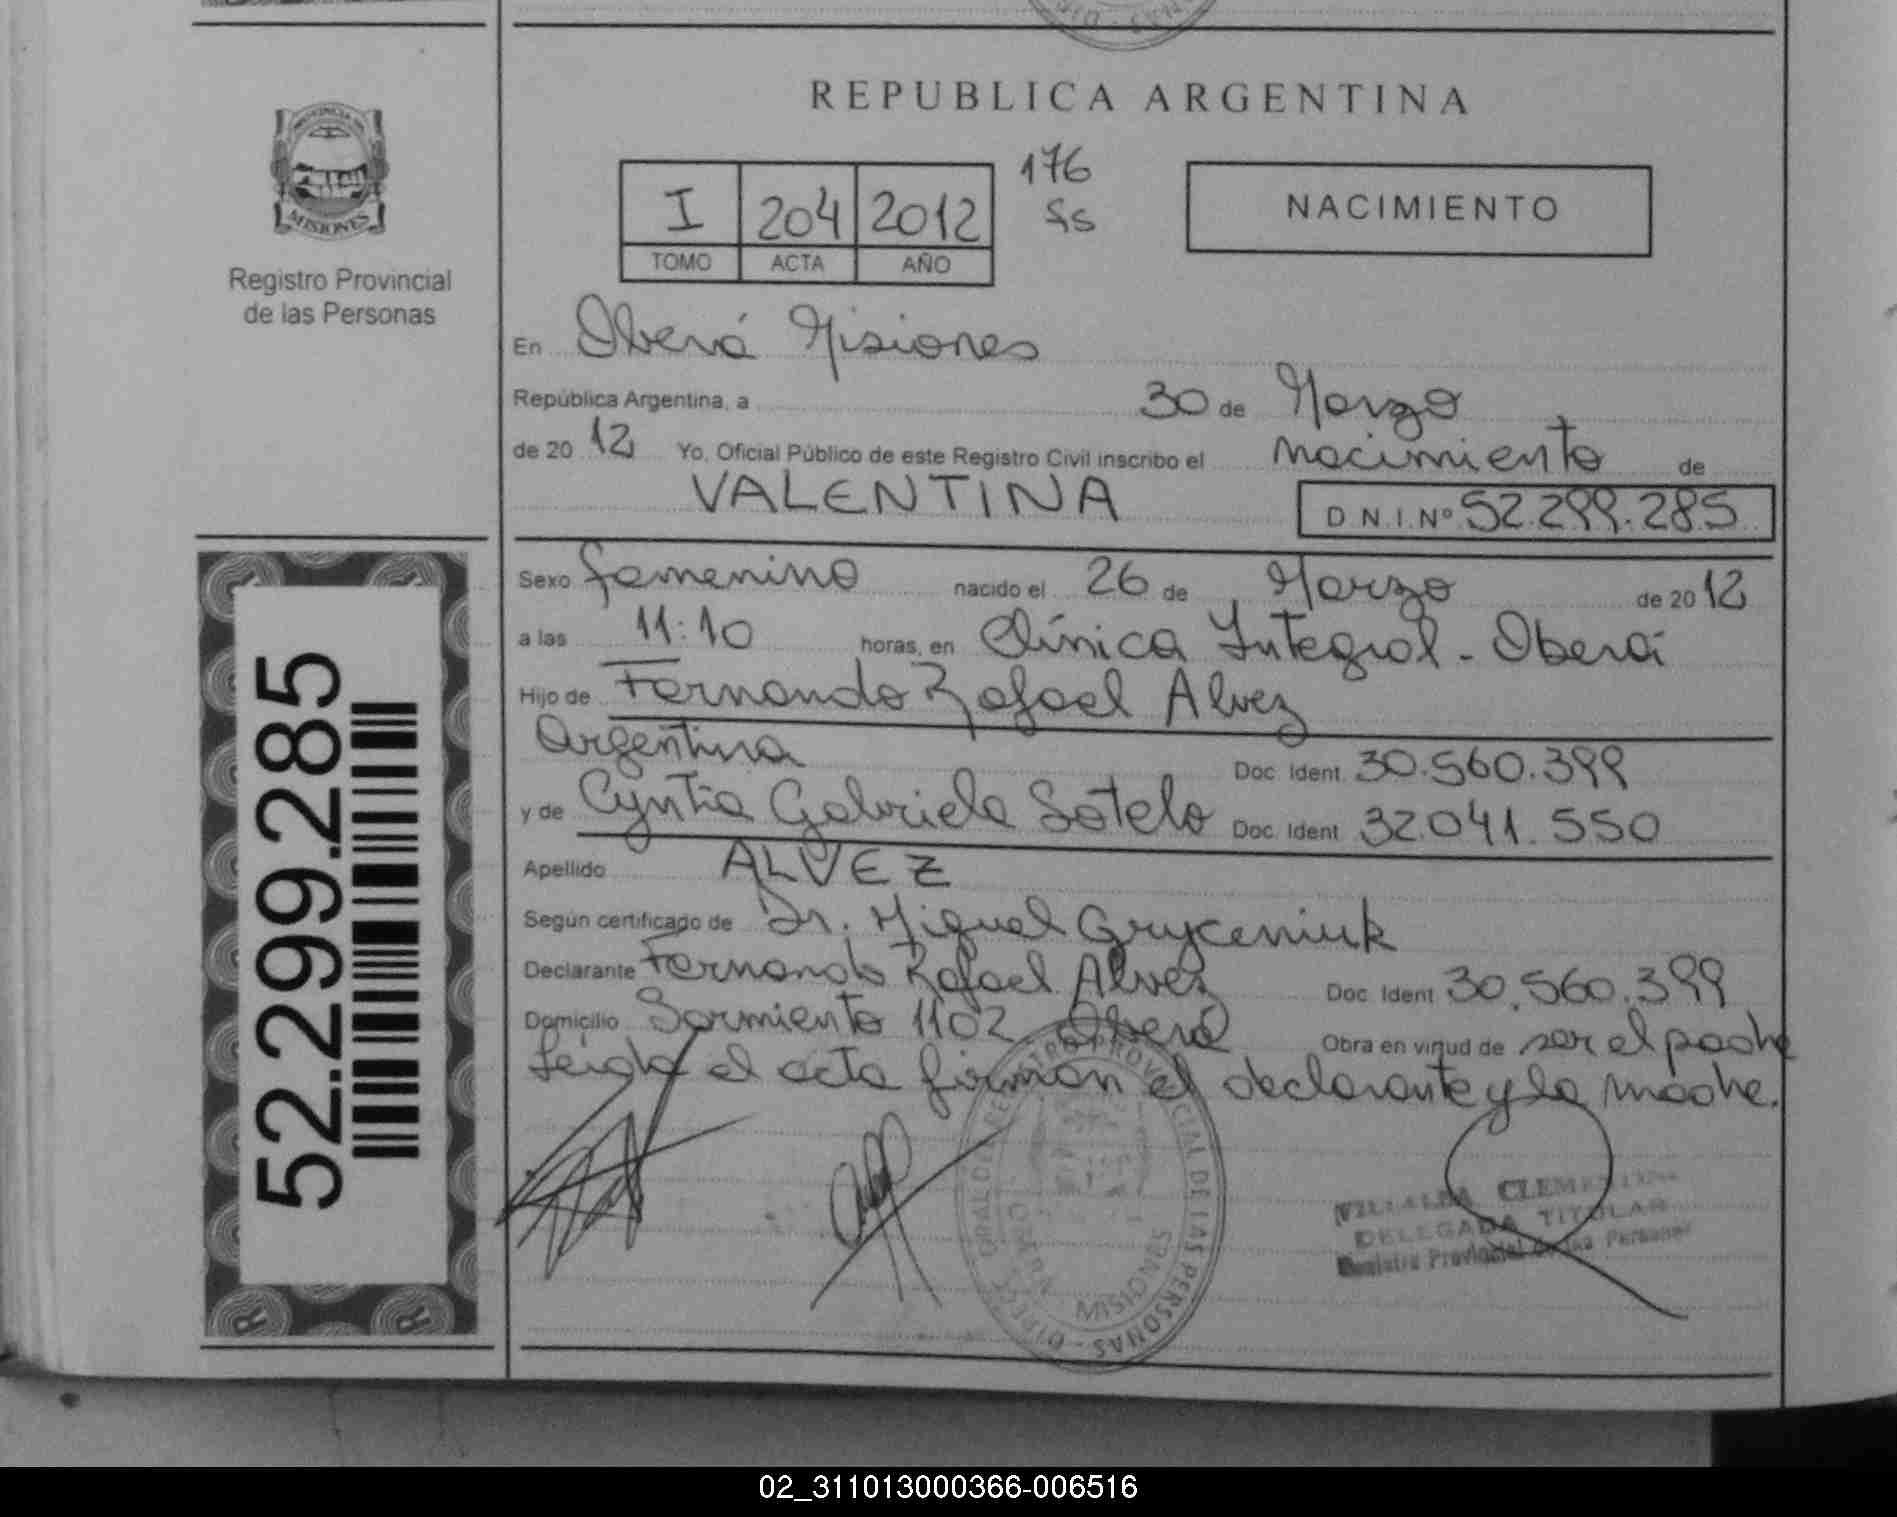 REPUBLICA ARGENTINA
PROVINCIA DE
MISIONES
Registro Provincial
de las Personas
I 204 2012
TOMO ACTA AÑO
176
fs
NACIMIENTO
En Oberá Misiones
República Argentina, a 30 de Marzo
de 20 12 Yo, Oficial Público de este Registro Civil inscribo el nacimiento de
VALENTINA D N.I.Nº 52.299.285
Sexo femenino nacido el 26 de Marzo de 20 12
a las 11:10 horas, en Clínica Integral - Oberá
Hijo de Fernando Rafael Alvez
Argentina Doc. Ident. 30.560.399
y de Cyntia Gabriela Sotelo Doc. Ident 32.041.550
Apellido ALVEZ
Según certificado de Dr. Miguel Gryceniuk
Declarante Fernando Rafael Alvez Doc. Ident 30.560.399
Domicilio Sarmiento 1102 Oberá Obra en virtud de ser el padre
Leida el acta firman el declarante y la madre.
52.299.285
REGISTRO PROVINCIAL DE LAS PERSONAS
OBERA MISIONES
VILLALBA CLEMENTINA
DELEGADA TITULAR
Registro Provincial de las Personas
02_311013000366-006516